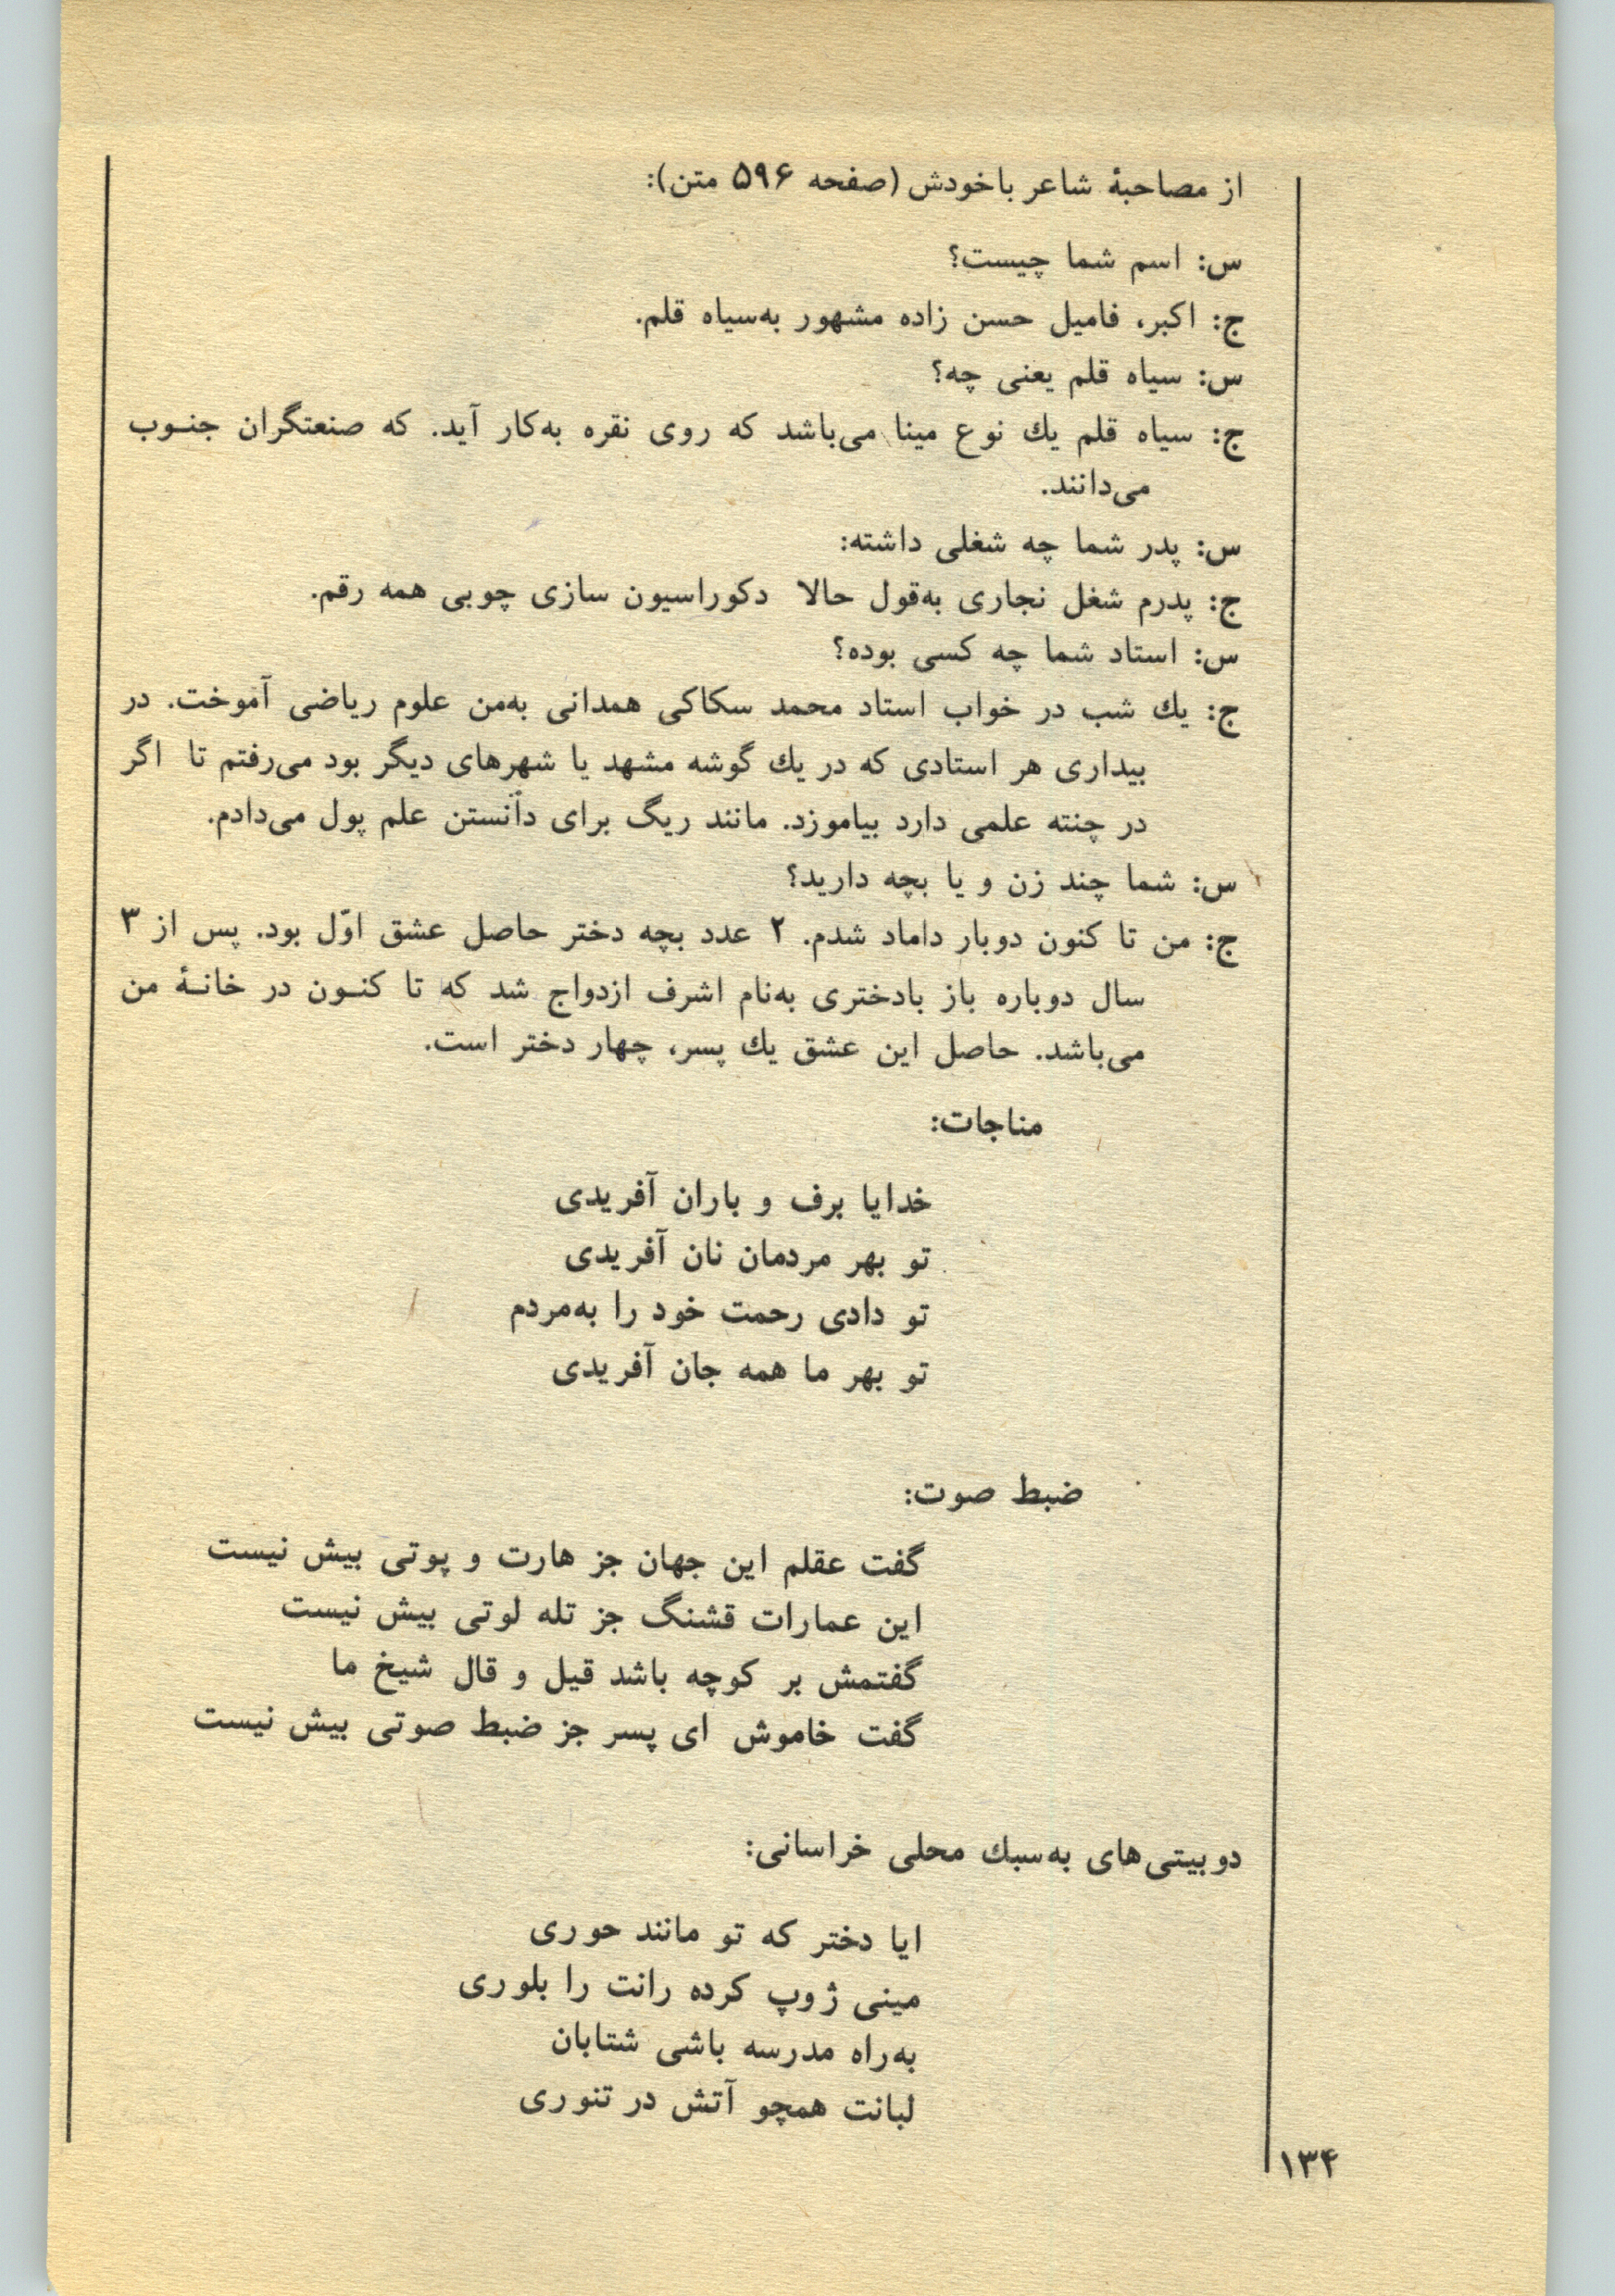 از مصاحبهٔ شاعر باخودش (صفحه ۵۹۶ متن):
س: اسم شما چیست؟
ج: اکبر، فامیل حسن زاده مشهور به‌سیاه قلم.
س: سیاه قلم یعنی چه؟
ج: سیاه قلم یك نوع مینا می‌باشد که روی نقره به‌کار آید. که صنعتگران جنـوب
می‌دانند.
س: پدر شما چه شغلی داشته:
ج: پدرم شغل نجاری به‌قول حالا دکوراسیون سازی چوبی همه رقم.
س: استاد شما چه کسی بوده؟
ج: یك شب در خواب استاد محمد سکاکی همدانی به‌من علوم ریاضی آموخت. در
بیداری هر استادی که در یك گوشه مشهد یا شهرهای دیگر بود می‌رفتم تا اگر
در چنته علمی دارد بیاموزد. مانند ریگ برای دانستن علم پول می‌دادم.
س: شما چند زن و یا بچه دارید؟
ج: من تا کنون دوبار داماد شدم. ۲ عدد بچه دختر حاصل عشق اوّل بود. پس از ۳
سال دوباره باز بادختری به‌نام اشرف ازدواج شد که تا کنـون در خانـهٔ من
می‌باشد. حاصل این عشق یك پسر، چهار دختر است.
مناجات:
خدایا برف و باران آفریدی
تو بهر مردمان نان آفریدی
تو دادی رحمت خود را به‌مردم
تو بهر ما همه جان آفریدی
ضبط صوت:
گفت عقلم این جهان جز هارت و پوتی بیش نیست
این عمارات قشنگ جز تله لوتی بیش نیست
گفتمش بر کوچه باشد قیل و قال شیخ ما
گفت خاموش ای پسر جز ضبط صوتی بیش نیست
دوبیتی‌های به‌سبك محلی خراسانی:
ایا دختر که تو مانند حوری
مینی ژوپ کرده رانت را بلوری
به‌راه مدرسه باشی شتابان
لبانت همچو آتش در تنوری
۱۳۴